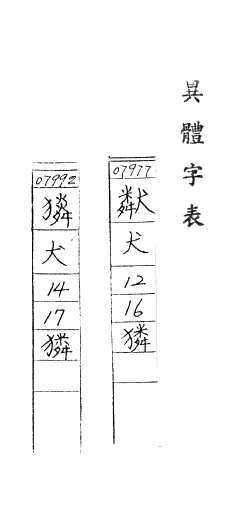 異體字表
07977
犬
12
16
獜
07992
犬
14
17
獜